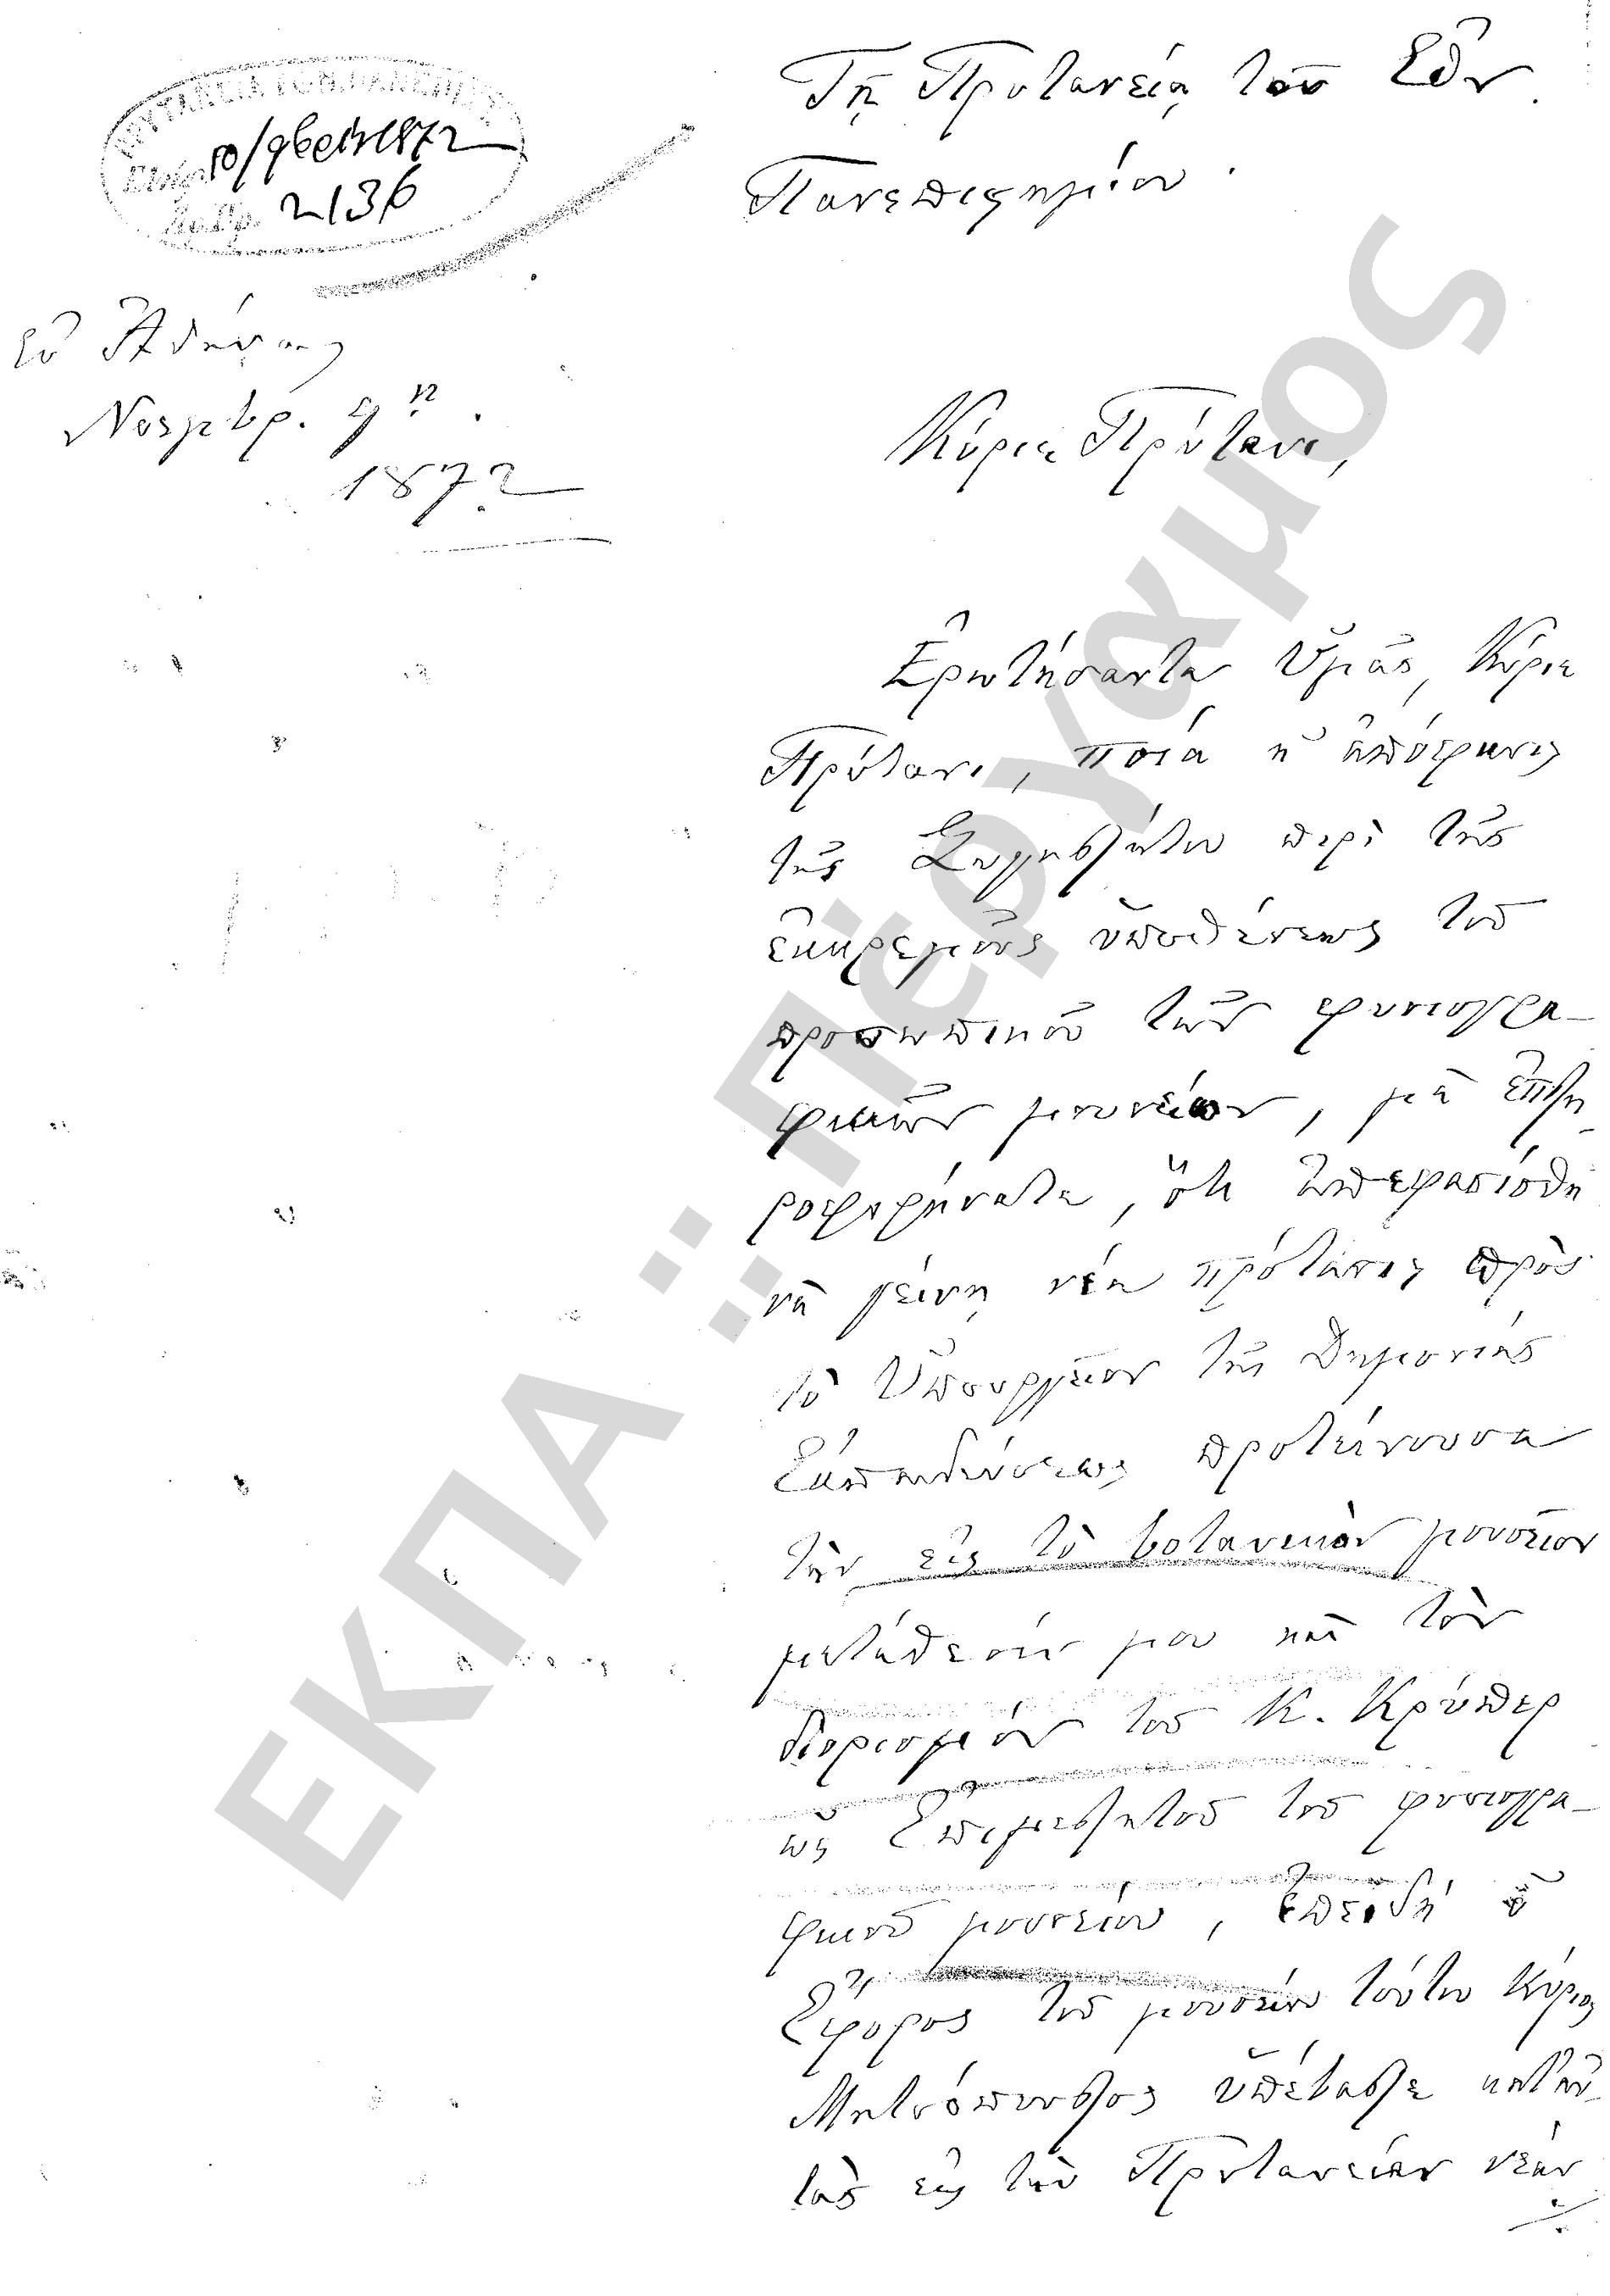 10/9βρίου 1872
2136
Τῇ Πρυτανείᾳ τοῦ Ἐθν.
Πανεπιστημίου.
Ἐν Ἀθήναις
Νοεμβρ. 9ῃ
1872
Κύριε Πρύτανι,
Ἐρωτήσαντα Ὑμᾶς, Κύριε
Πρύτανι, ποία ἡ ἀπόφασις
τῆς Συγκλήτου περὶ τῆς
ἐκκρεμοῦς ὑποθέσεως τοῦ
προσωπικοῦ τῶν φυσιογρα-
φικῶν μουσείων, μὲ ἐπλη
ροφορήσατε, ὅτι ἀπεφασίσθη
νὰ γείνῃ νέα πρότασις πρὸς
τὸ Ὑπουργεῖον τῆς Δημοσίας
Ἐκπαιδεύσεως προτείνουσα
τὴν εἰς τὸ βοτανικὸν μουσεῖον
μετάθεσίν μου καὶ τὸν
διορισμὸν τοῦ Κ. Κρύπερ
ὡς Ἐπιμελητοῦ τοῦ φυσιογρα-
φικοῦ μουσείου, ἐπειδὴ ὁ
Ἔφορος τοῦ μουσείου τούτου Κύριος
Μητσόπουλος ὑπέβαλε κατ' αὐ
τὰς εἰς τὴν Πρυτανείαν νέαν
./.
ΕΚΠΑ :: Πέργαμος